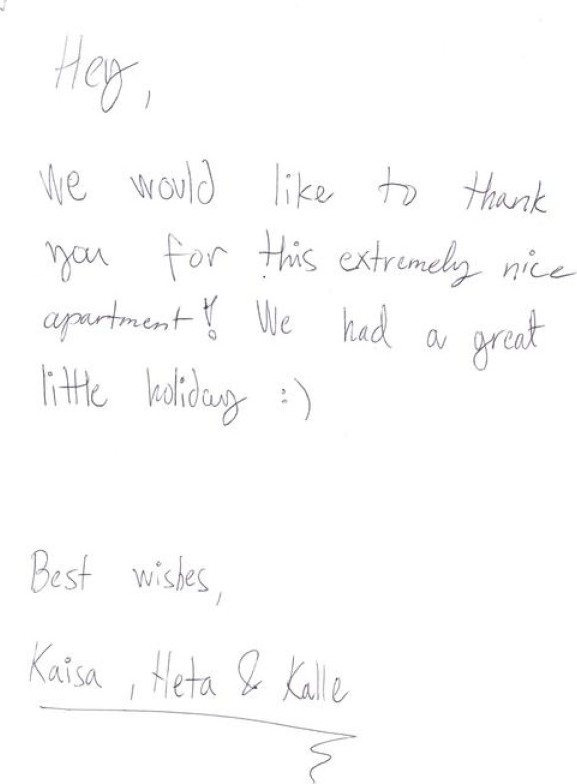 Hey,
We would like to thank
you for this extremely nice
apartment! We had a great
little holiday :)
Best wishes,
Kaisa, Heta & Kalle